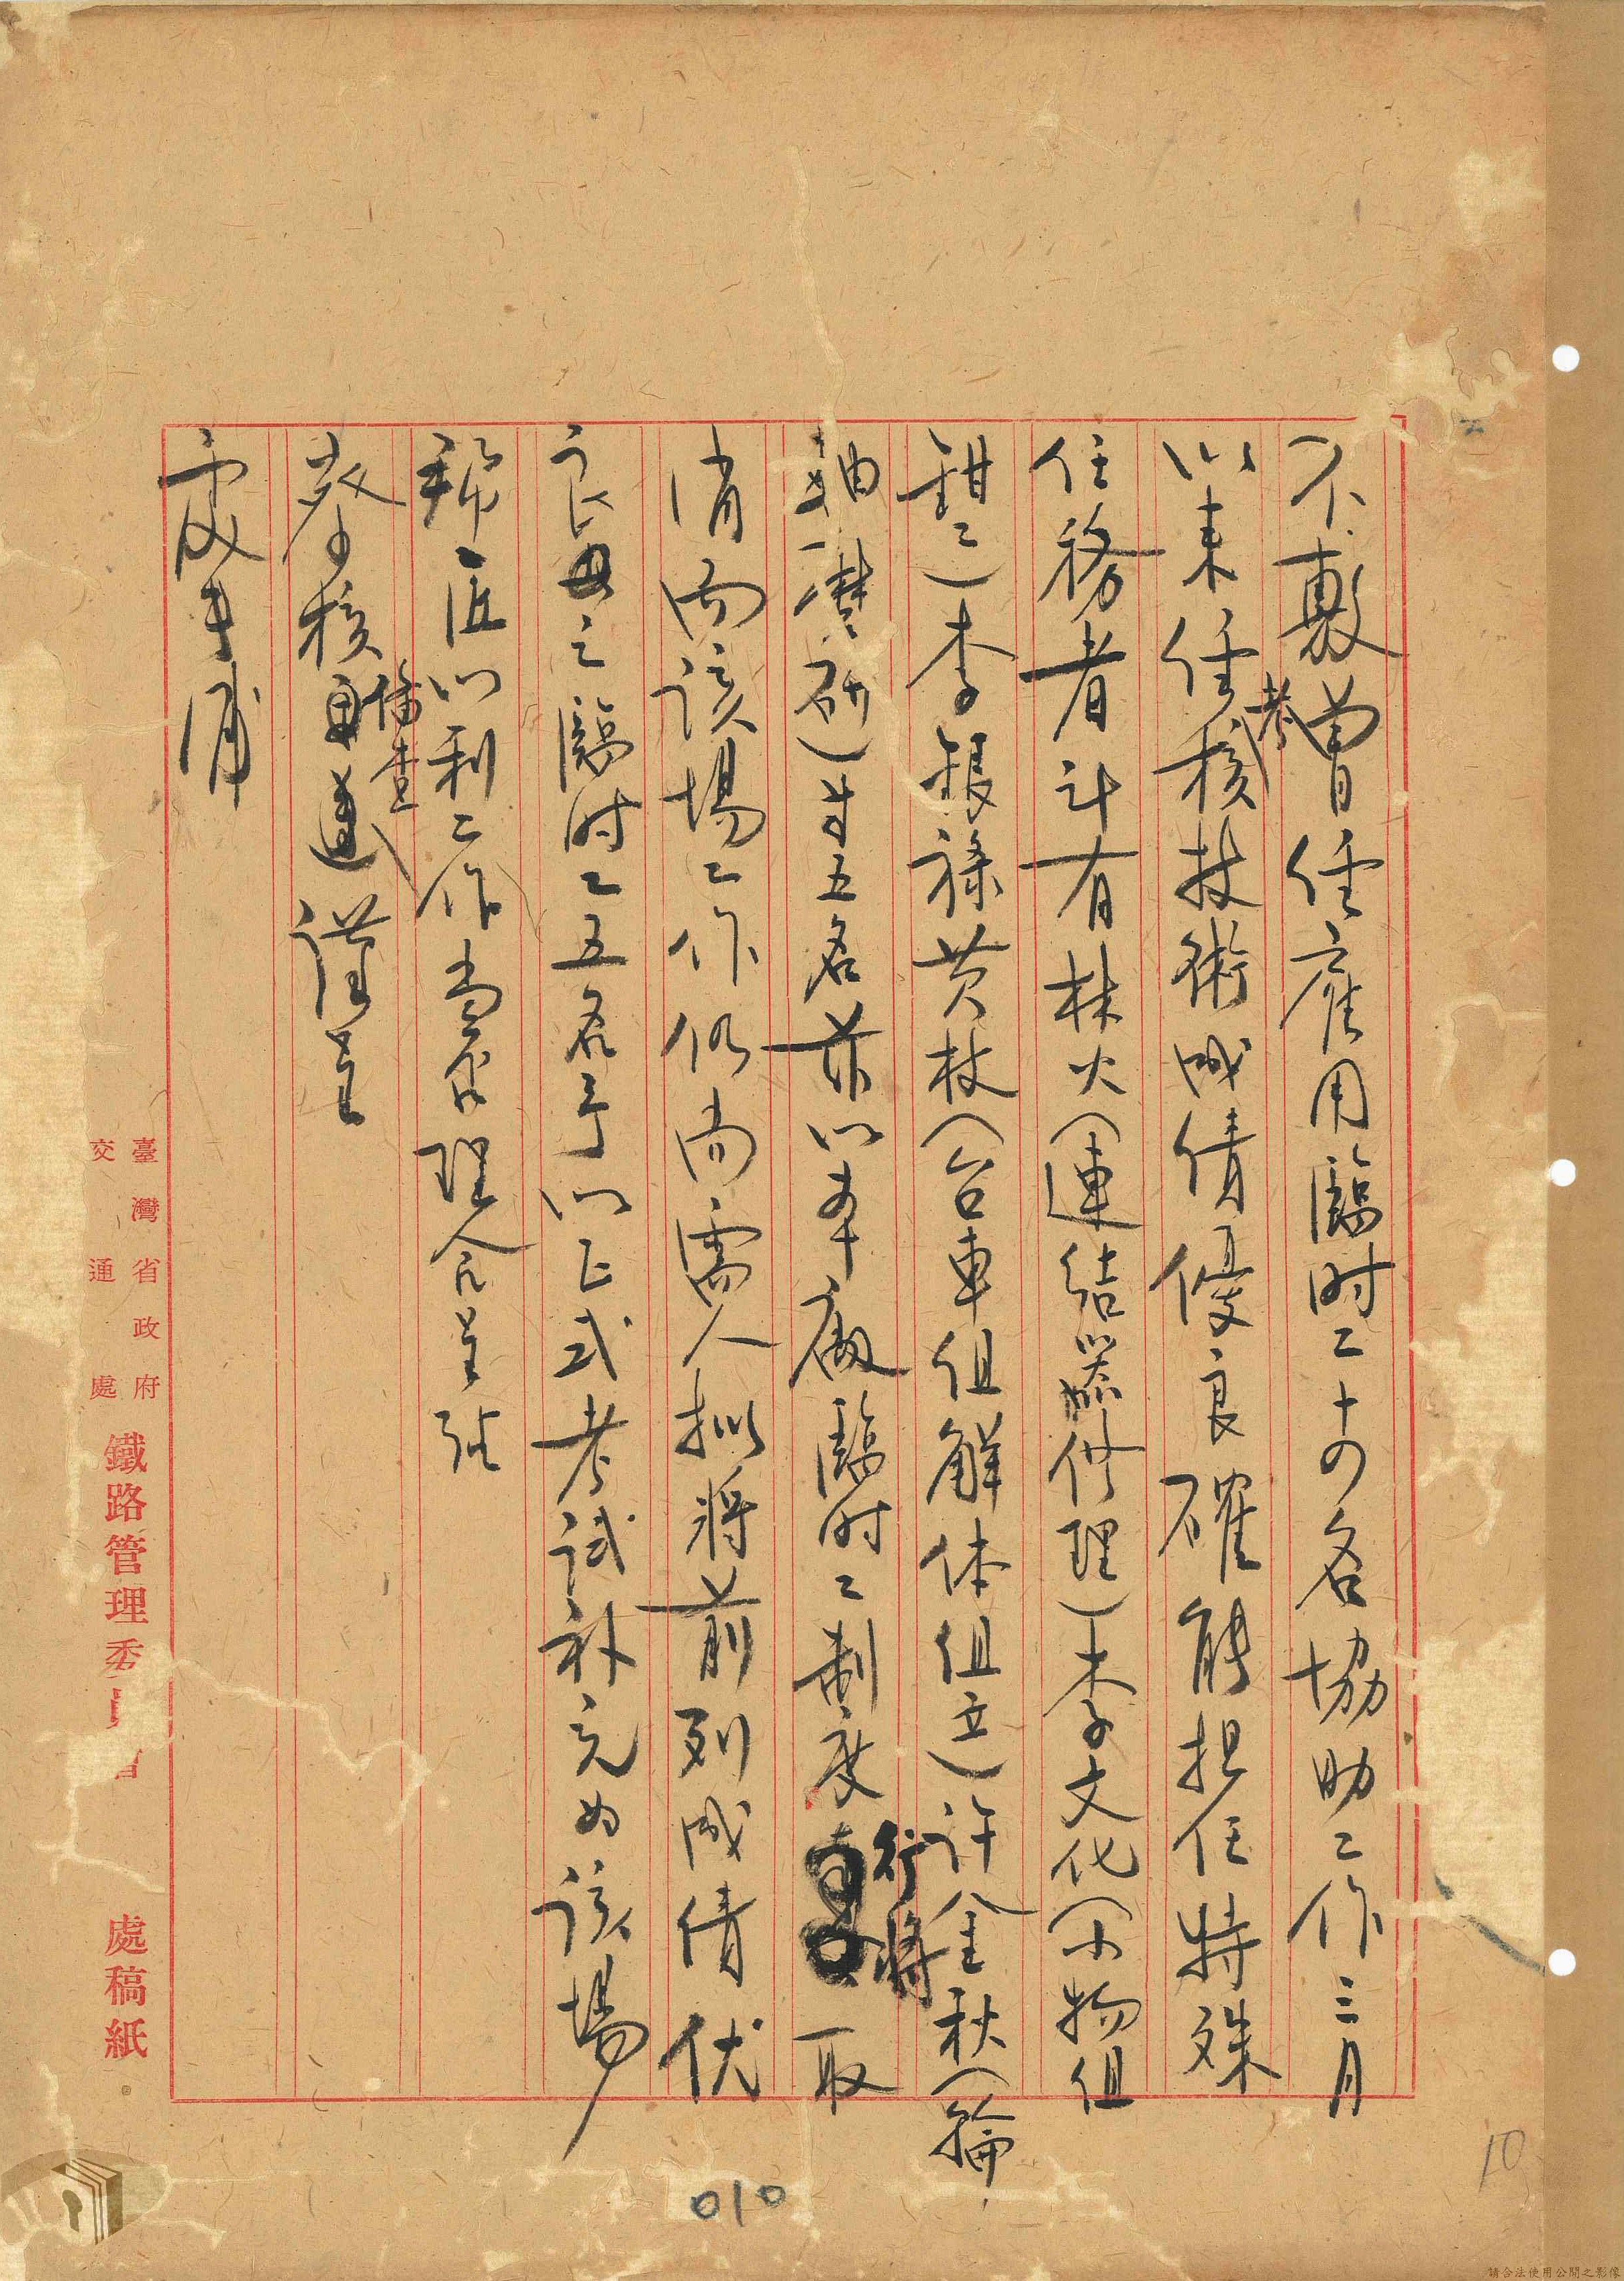 不敷曾經雇用臨時工十四名協助工作三月
以来経考核技術成績優良確能担任特殊
任務者計有林火(連結器修理)李文化(小物組
鉗工)李銀祿黃枝(台車組解体組立)許金秋(輪
軸研)等五名茲以本廠臨時工制度行將取
消而該場工作仍尚需人拟將前列成績优
良之臨時工五名予以正式考試补充為該場
工匠以利工作当否理合呈請
鑒核備查謹呈
處長浦
臺灣省政府
交通處
鐵路管理委員會
處稿紙
010
10
請合法使用公開之影像